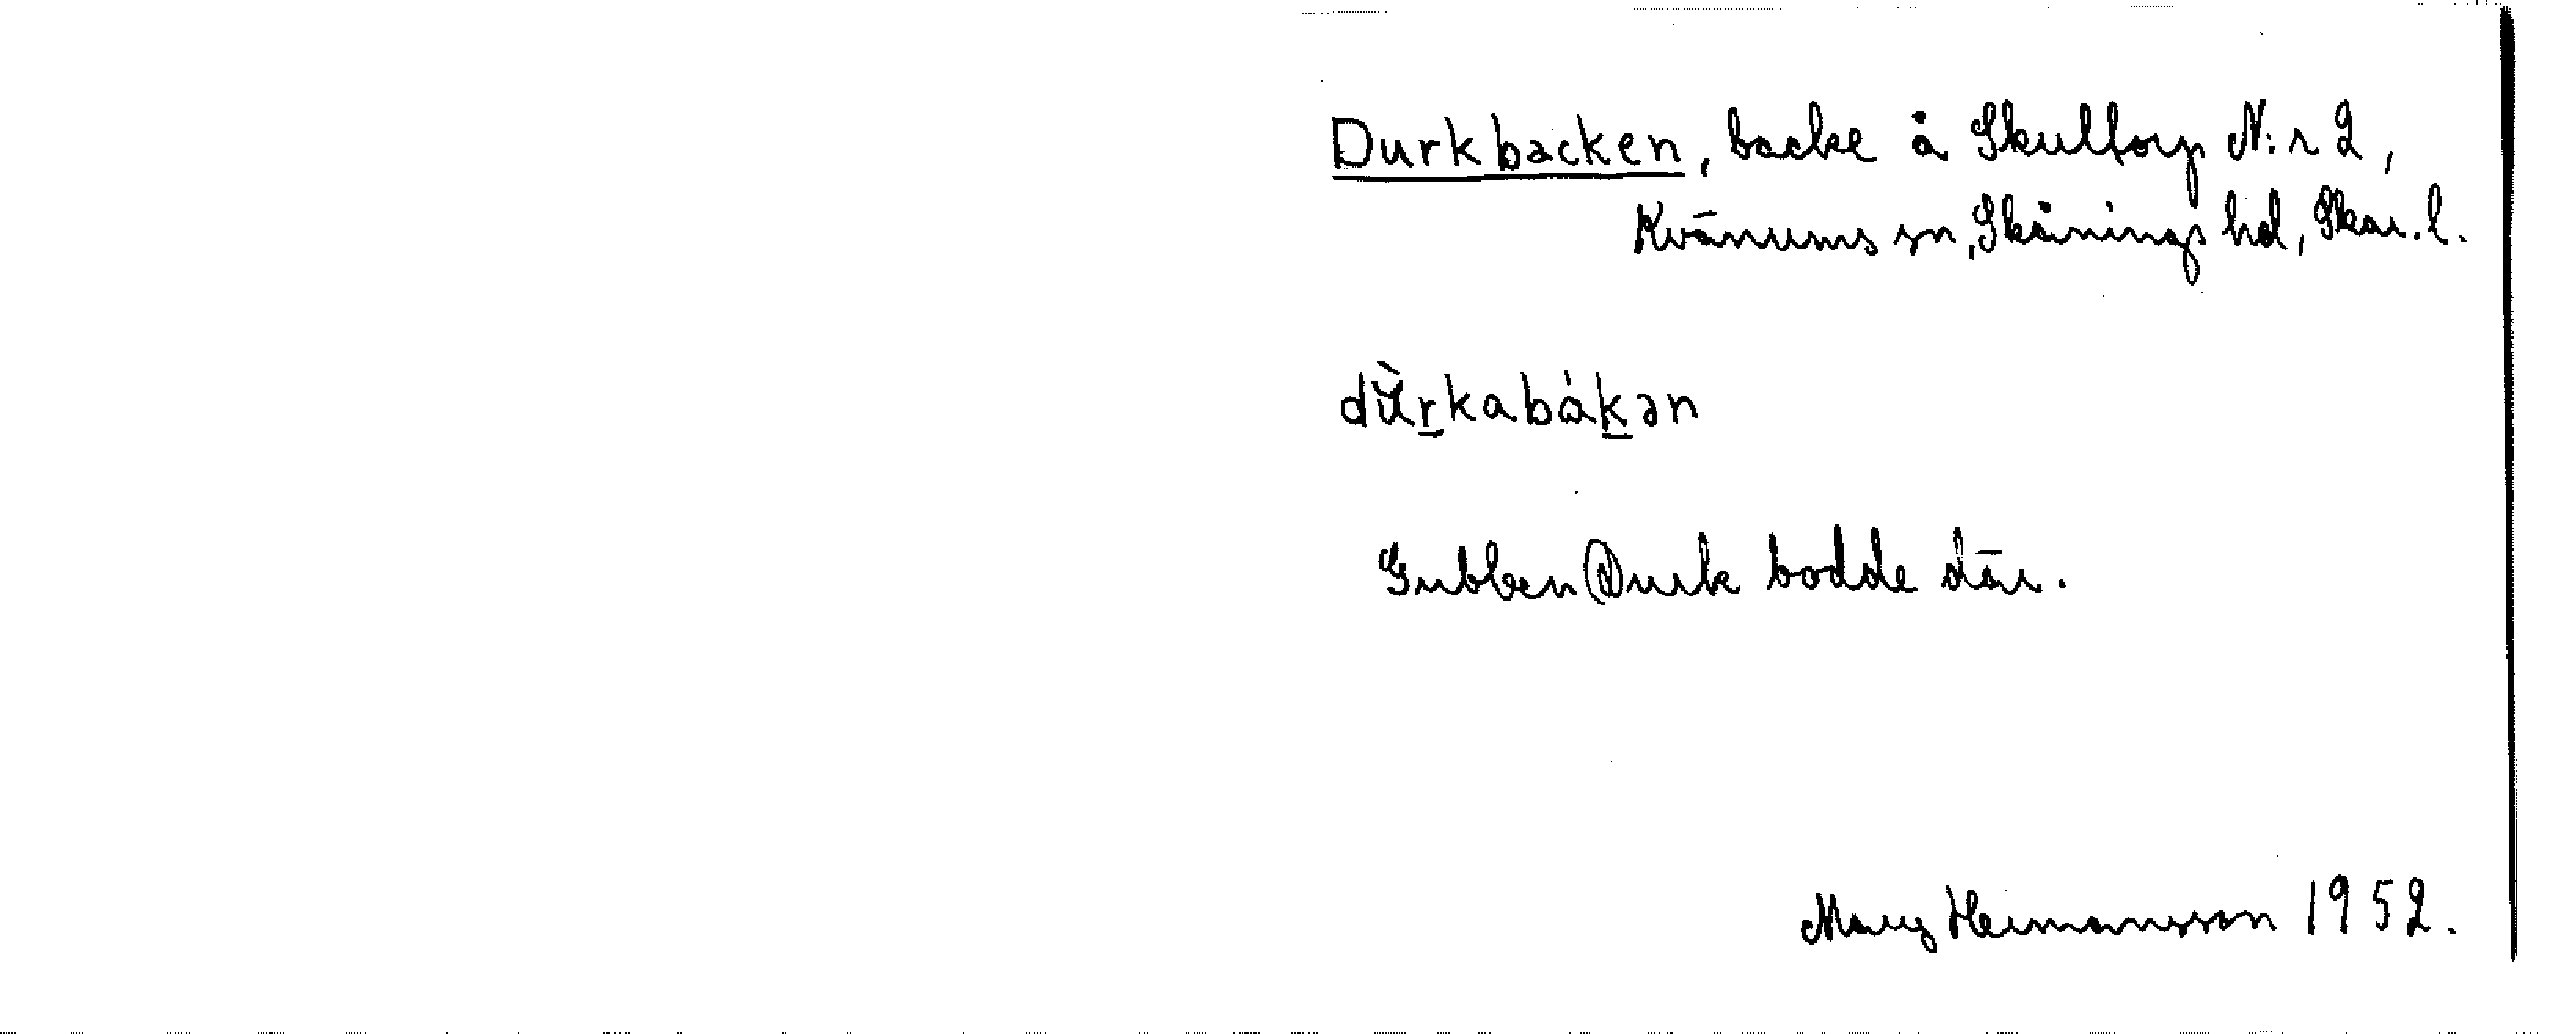 Durkbacken, backe å Skultorp N:r 2,
Kvänums sn, Skånings hd, Skar. l.
dùrkabákən
Gubben Durk bodde där.
Mary Hermansson 1952.